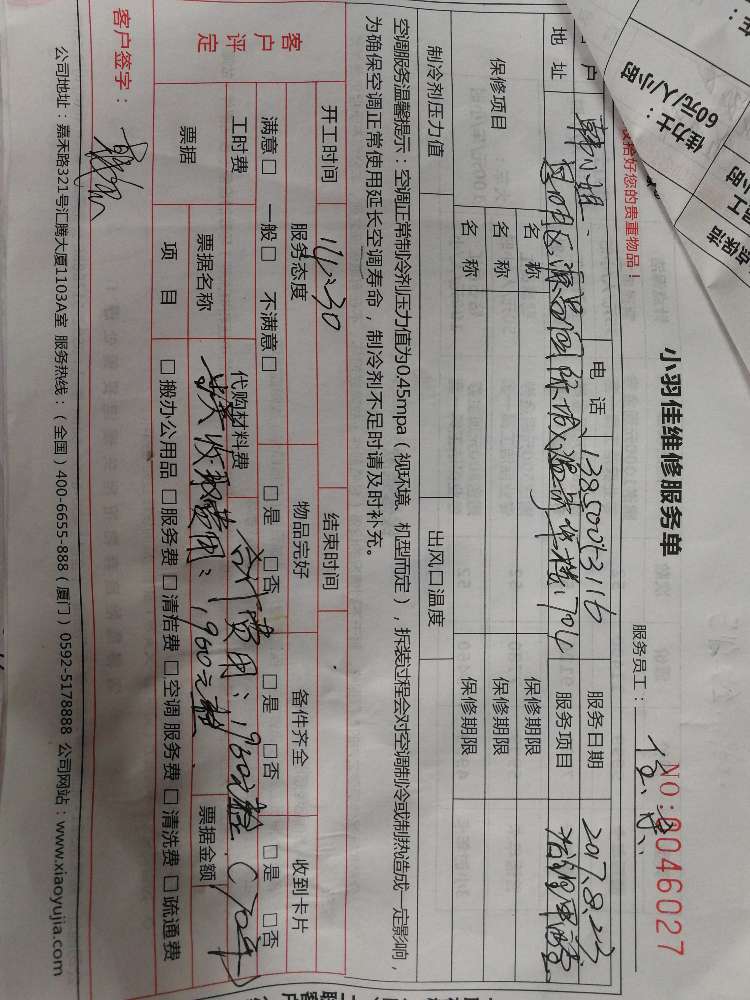 小羽佳维修服务单
NO:0046027
服务员工：
收拾好您的贵重物品！
佳力士：
60元/人/小时
客户 韩小姐 电话 13850053116 服务日期 2017.8.23
地址 服务项目
保修项目 名称 保修期限
名称 保修期限
名称 保修期限
制冷剂压力值 出风口温度
空调服务温馨提示：空调正常制冷剂压力值为0.45mpa（视环境、机型而定），拆装过程会对空调制冷或制热造成一定影响，
为确保空调正常使用延长空调寿命，制冷剂不足时请及时补充。
开工时间 14:30 结束时间
客户评定 服务态度 物品完好 备件齐全 收到卡片
满意□ 一般□ 不满意□ □是 □否 □是 □否 □是 □否
工时费 代购材料费 合计费用：1960元整
票据 票据名称 共收取费用：1960元整 票据金额
项目 □搬办公用品 □服务费 □清洁费 □空调服务费 □清洗费 □疏通费
客户签字：
公司地址：嘉禾路321号汇腾大厦1103A室 服务热线：（全国）400-6655-888（厦门）0592-5178888 公司网站：www.xiaoyujia.com